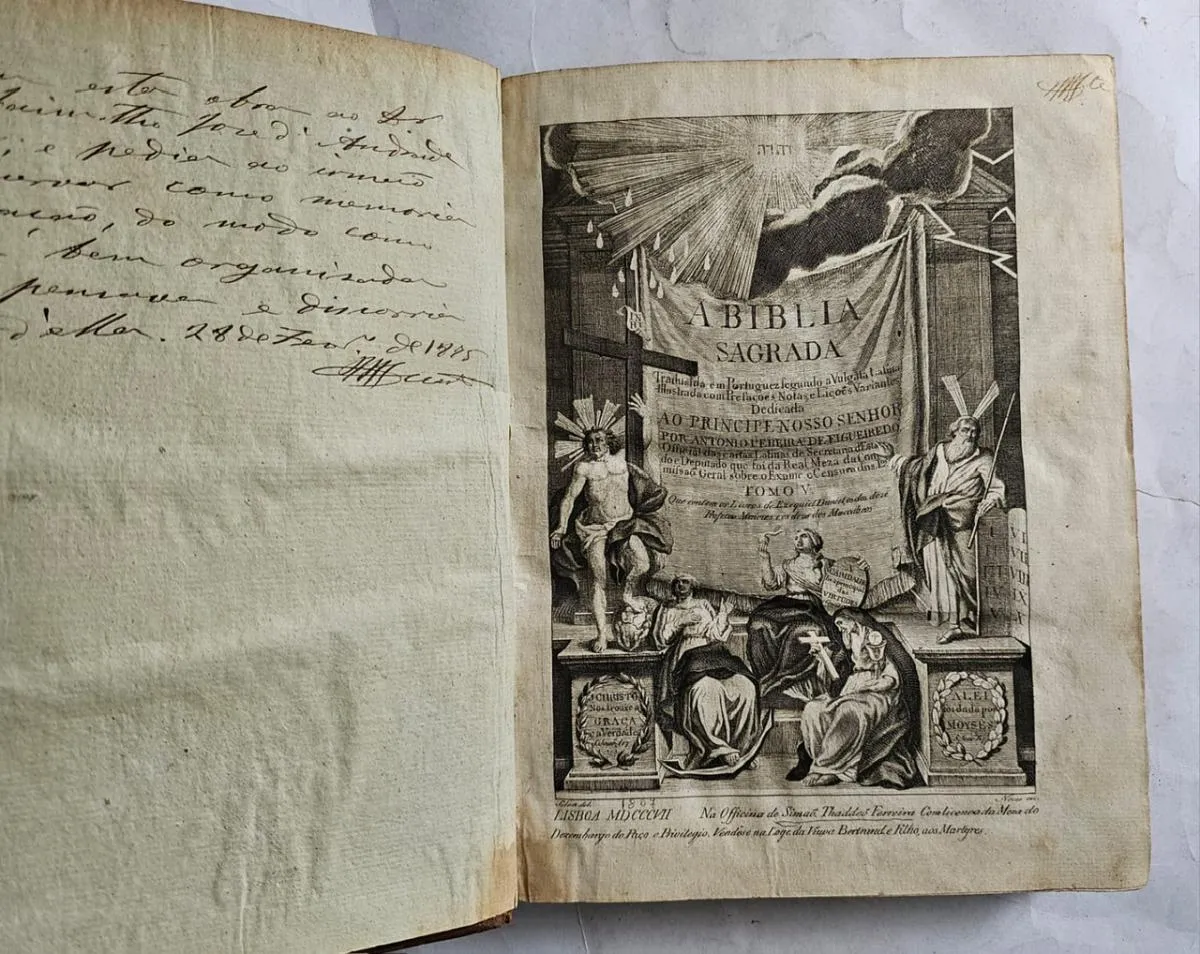 esta obra ao Sr
José d' Andrade
e pedia ao irmão
como memoria
do modo como
bem organisada
pensava e discorria
d'elle. 28 de Fev.º de 1895
יהוה
A BIBLIA
SAGRADA
Traduzida em Portuguez segundo a Vulgata Latina
Illustrada com Prefaçoes, Notas, e Lições Variantes.
Dedicada
AO PRINCIPE NOSSO SENHOR
POR ANTONIO PEREIRA DE FIGUEIREDO,
Official das Cartas Latinas de Secretaria d'Esta
do e Deputado que foi da Real Meza da Com
missaõ Geral sobre o Exame e Censura dos Li
TOMO V.
Que contem os Livros de Ezequiel Daniel os dos doze
Profetas Menores e os dous dos Maccabeos
CARIDADE
he a principal
das
VIRTUDES
VI
VII
VIII
IX
X
J. CHRISTO
Nos trouxe a
GRAÇA
e a Verdade
A LEI
foi dada por
MOYSES
Silva del.
1807
LISBOA MDCCCVII Na Officina de Simaõ Thaddeo Ferreira Com licença da Meza do
Dezembargo do Paço e Privilegio. Vendese na Loge da Viuva Bertrand e Filho, aos Martyres.